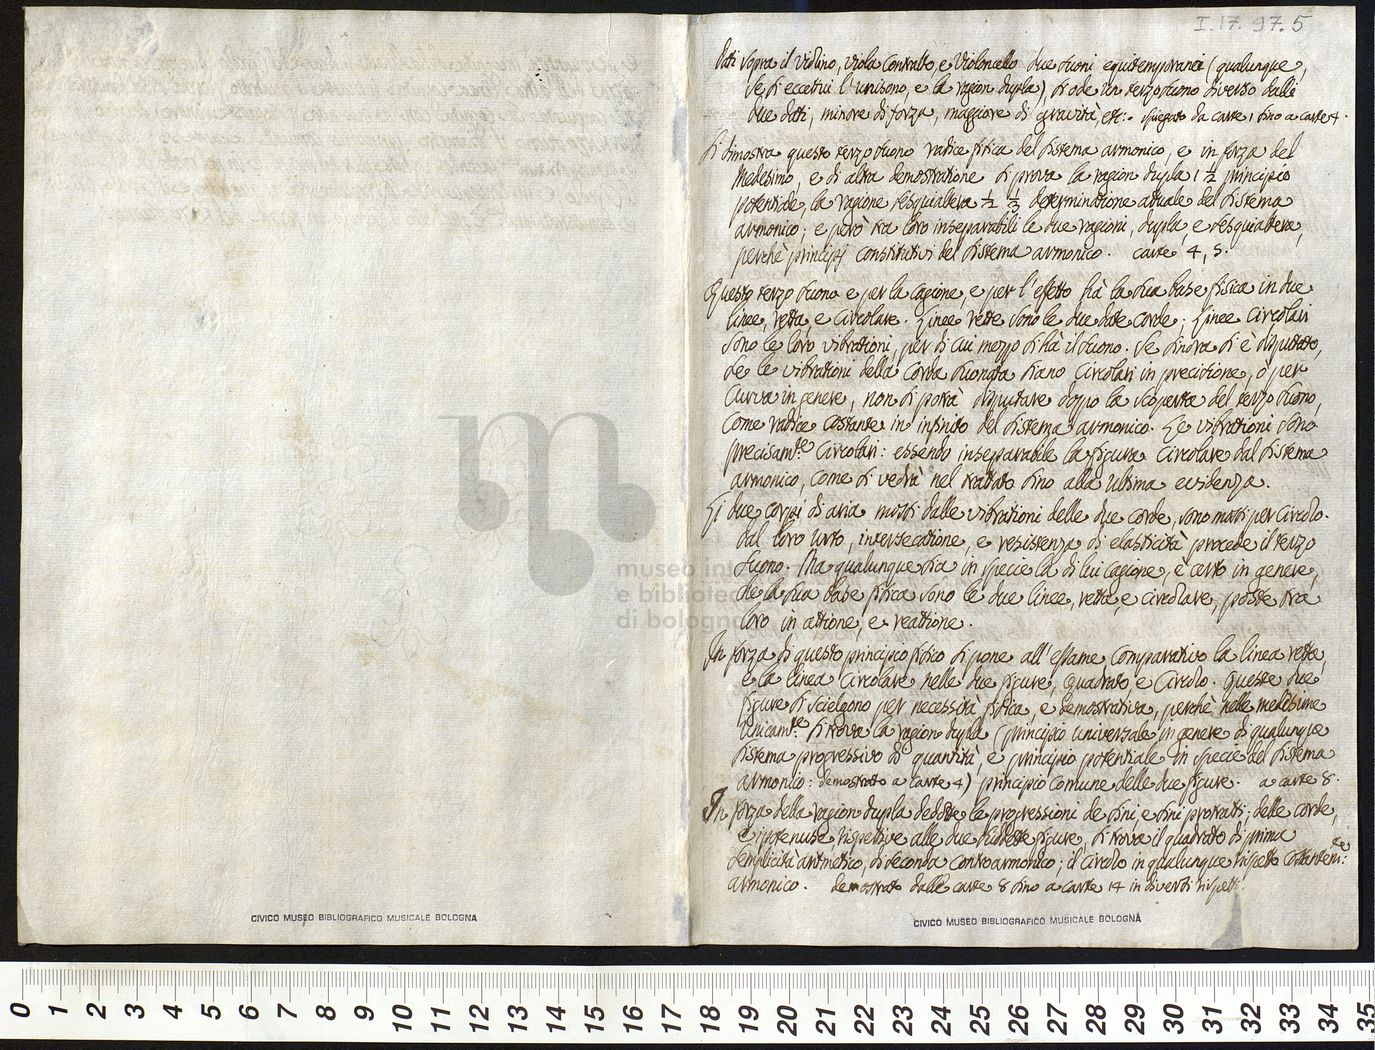 I.17.97.5
Dati sopra il Violino, Viola Contralto, e Violoncello due suoni equitemporanei (qualunque,
se si eccettui l'unisono, e la ragion dupla), si ode un terzo suono diverso dalli
due dati, minore di forza, maggiore di gravità, etc: spiegato da carte 1 sino a carte 4.
Si dimostra questo terzo suono radice fisica del sistema armonico, e in forza del
medesimo, e di altra demostratione si prova la ragion dupla 1 ½ principio
potentiale, la ragione sesquialtera ½ ⅓ determinatione attuale del sistema
armonico; e però tra loro inseparabili le due ragioni, dupla, e sesquialtera,
perchè principj constitutivi del sistema armonico. carte 4, 5.
Questo terzo suono e per la cagione, e per l'effetto hà la sua base fisica in due
linee, retta, e circolare. Linee rette sono le due date corde; Linee circolari
sono le loro vibrationi, per di cui mezzo si hà il suono. Se sinora si è disputato,
se le vibrationi della corda suonata siano circolari in precisione, ò per
curva in genere, non si potrà disputare doppo la scoperta del terzo suono,
come radice costante in infinito del sistema armonico. Le vibrationi sono
precisam.te Circolari: essendo inseparabile la figura circolare dal sistema
armonico, come si vedrà nel trattato sino alla ultima evidenza.
Li due corpi di aria mossi dalle vibrationi delle due corde, sono mossi per circolo.
Dal loro urto, intersecatione, e resistenza di elasticità procede il terzo
suono. Ma qualunque sia in specie la di lui cagione, è certo in genere,
che la sua base fisica sono le due linee, retta, e circolare, poste trà
loro in attione, e reattione.
In forza di questo principio fisico si pone all'essame comparativo la linea retta,
e la linea circolare nelle due figure, quadrato, e circolo. Queste due
figure si scielgono per necessità fisica, e demostrativa, perchè nelle medesime
unicam.te si trova la ragion dupla (principio universale in genere di qualunque
sistema progressivo di quantità, e principio potentiale in specie del sistema
armonico: demostrato a carte 4) principio comune delle due figure. a carte 8.
In forza della ragion dupla dedotte le progressioni de sini, e sini protratti; delle corde,
e ipotenuse rispettive alle due sudette figure, si trova il quadrato di prima
semplicità aritmetico, di seconda contrarmonico; il circolo in qualunque rispetto costantem:te
armonico. demostrato dalle carte 8 sino a carte 14 in diversi rispetti.
museo inte
e bibliotec
di bologna
CIVICO MUSEO BIBLIOGRAFICO MUSICALE BOLOGNA
CIVICO MUSEO BIBLIOGRAFICO MUSICALE BOLOGNA
0 1 2 3 4 5 6 7 8 9 10 11 12 13 14 15 16 17 18 19 20 21 22 23 24 25 26 27 28 29 30 31 32 33 34 35